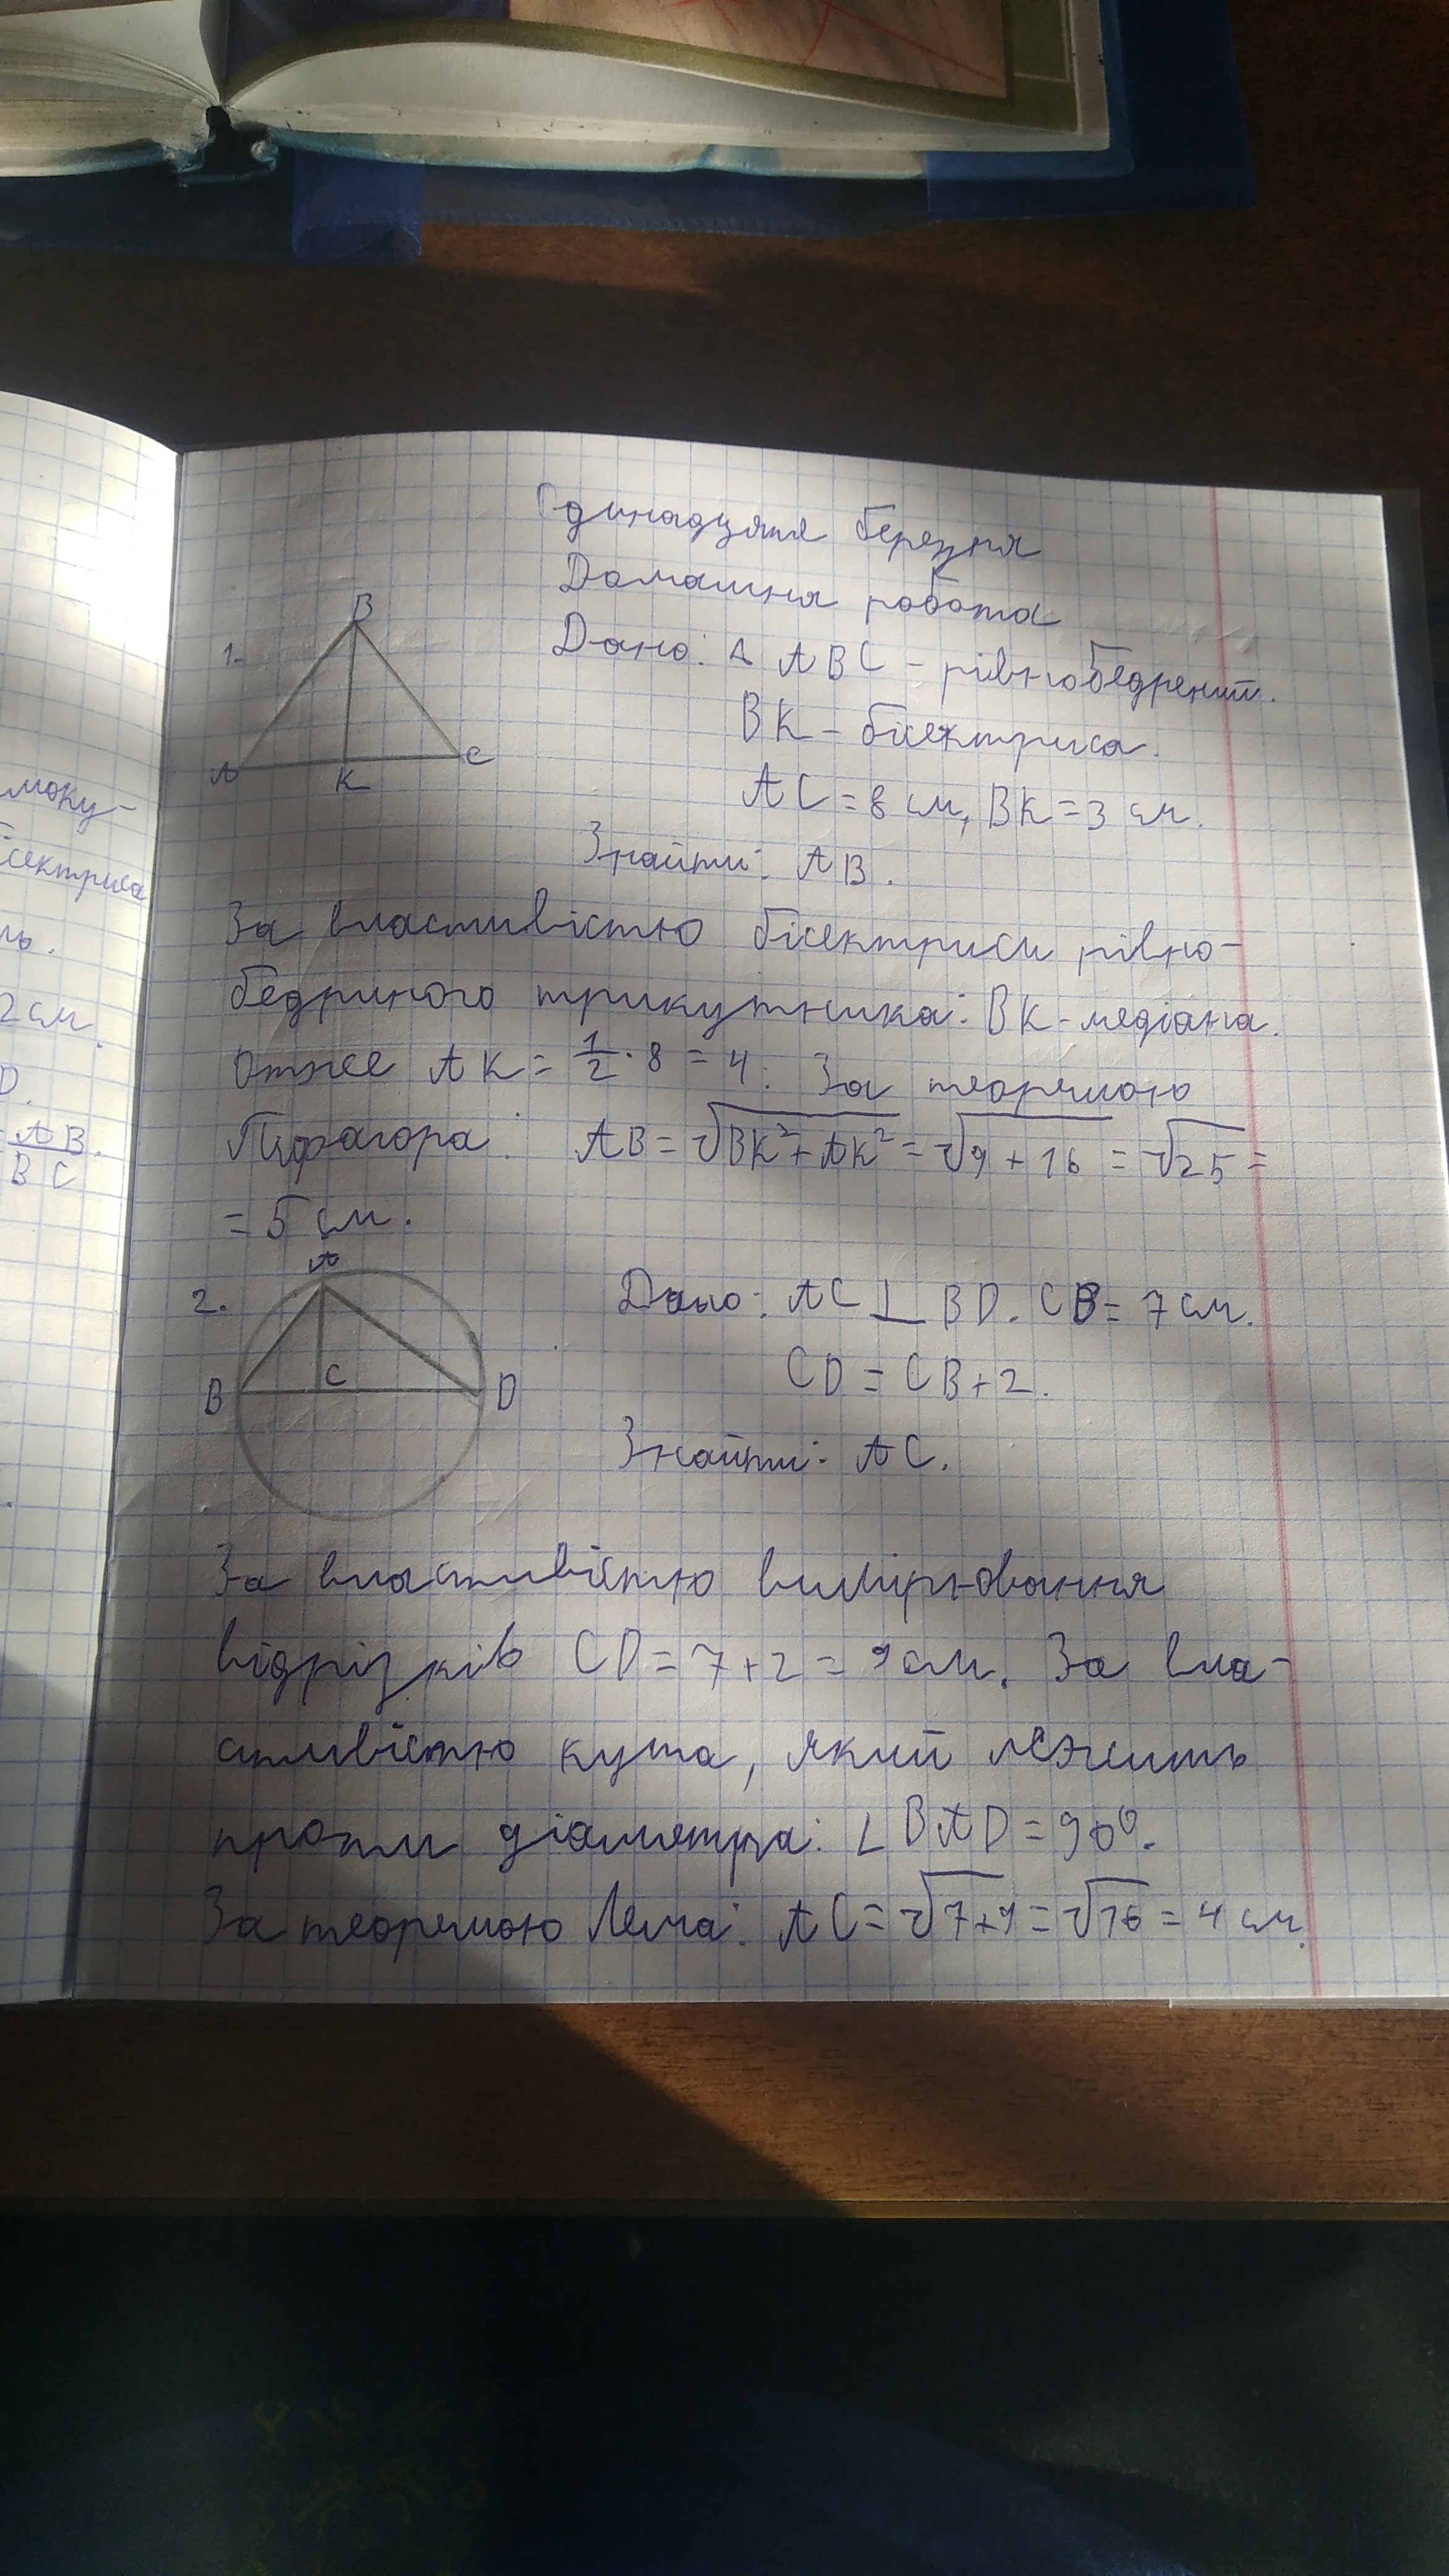 моку-
ісектриса
ль.
2 см.
D.
= AB
BC
Одинадцяте березня
Домашня робота
1.
B
A
K
C
Дано: Δ ABC - рівнобедрений.
BK - бісектриса.
AC = 8 см, BK = 3 см.
Знайти: AB.
За властивістю бісектриси рівно-
бедриного трикутника: BK - медіана.
Отже AK = 1/2 · 8 = 4. За теоремою
Піфагора: AB = √BK² + AK² = √9 + 16 = √25 =
= 5 см.
2.
A
B
C
D
Дано: AC ⊥ BD. CB = 7 см.
CD = CB + 2.
Знайти: AC.
За властивістю вимірювання
відрізків CD = 7 + 2 = 9 см. За вла-
стивістю кута, який лежить
проти діаметра: ∠BAD = 90°.
За теоремою Лема: AC = √7+9 = √16 = 4 см.